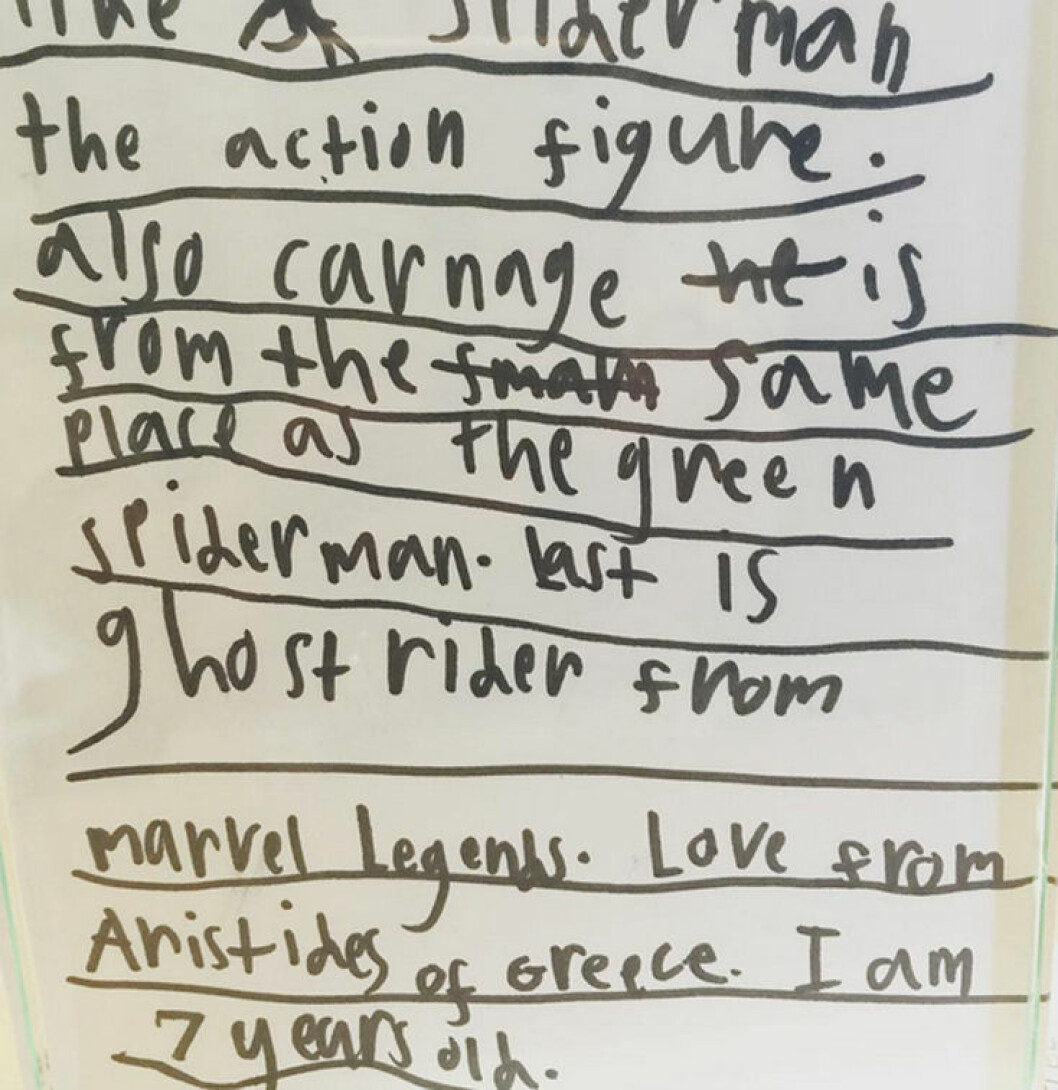 spiderman
the action figure.
also carnage he is
from the same
place as the green
spiderman. last is
ghost rider from
marvel Legends. Love from
Aristides of Greece. I am
7 years old.